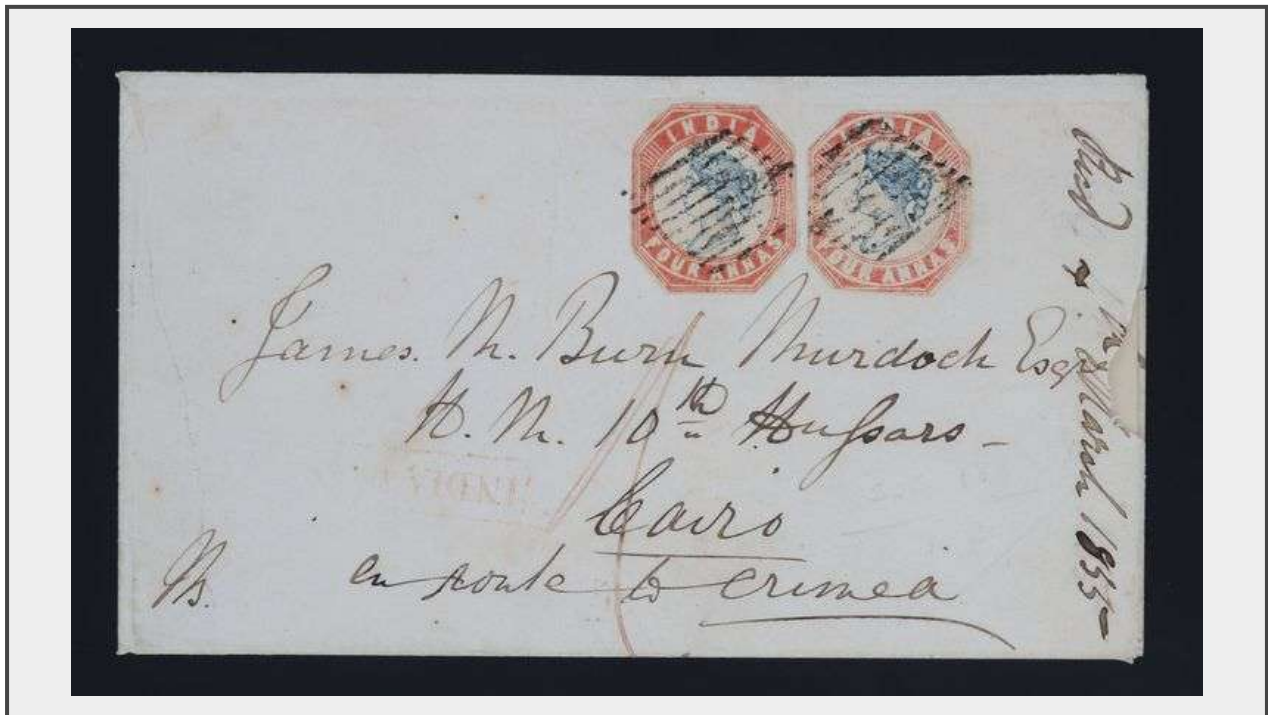 INDIA
FOUR ANNAS
INDIA
FOUR ANNAS
James. M. Burn Murdoch Esqr
H. M. 10th Hussars -
Cairo
en route to Crimea
INDIA
March 1855